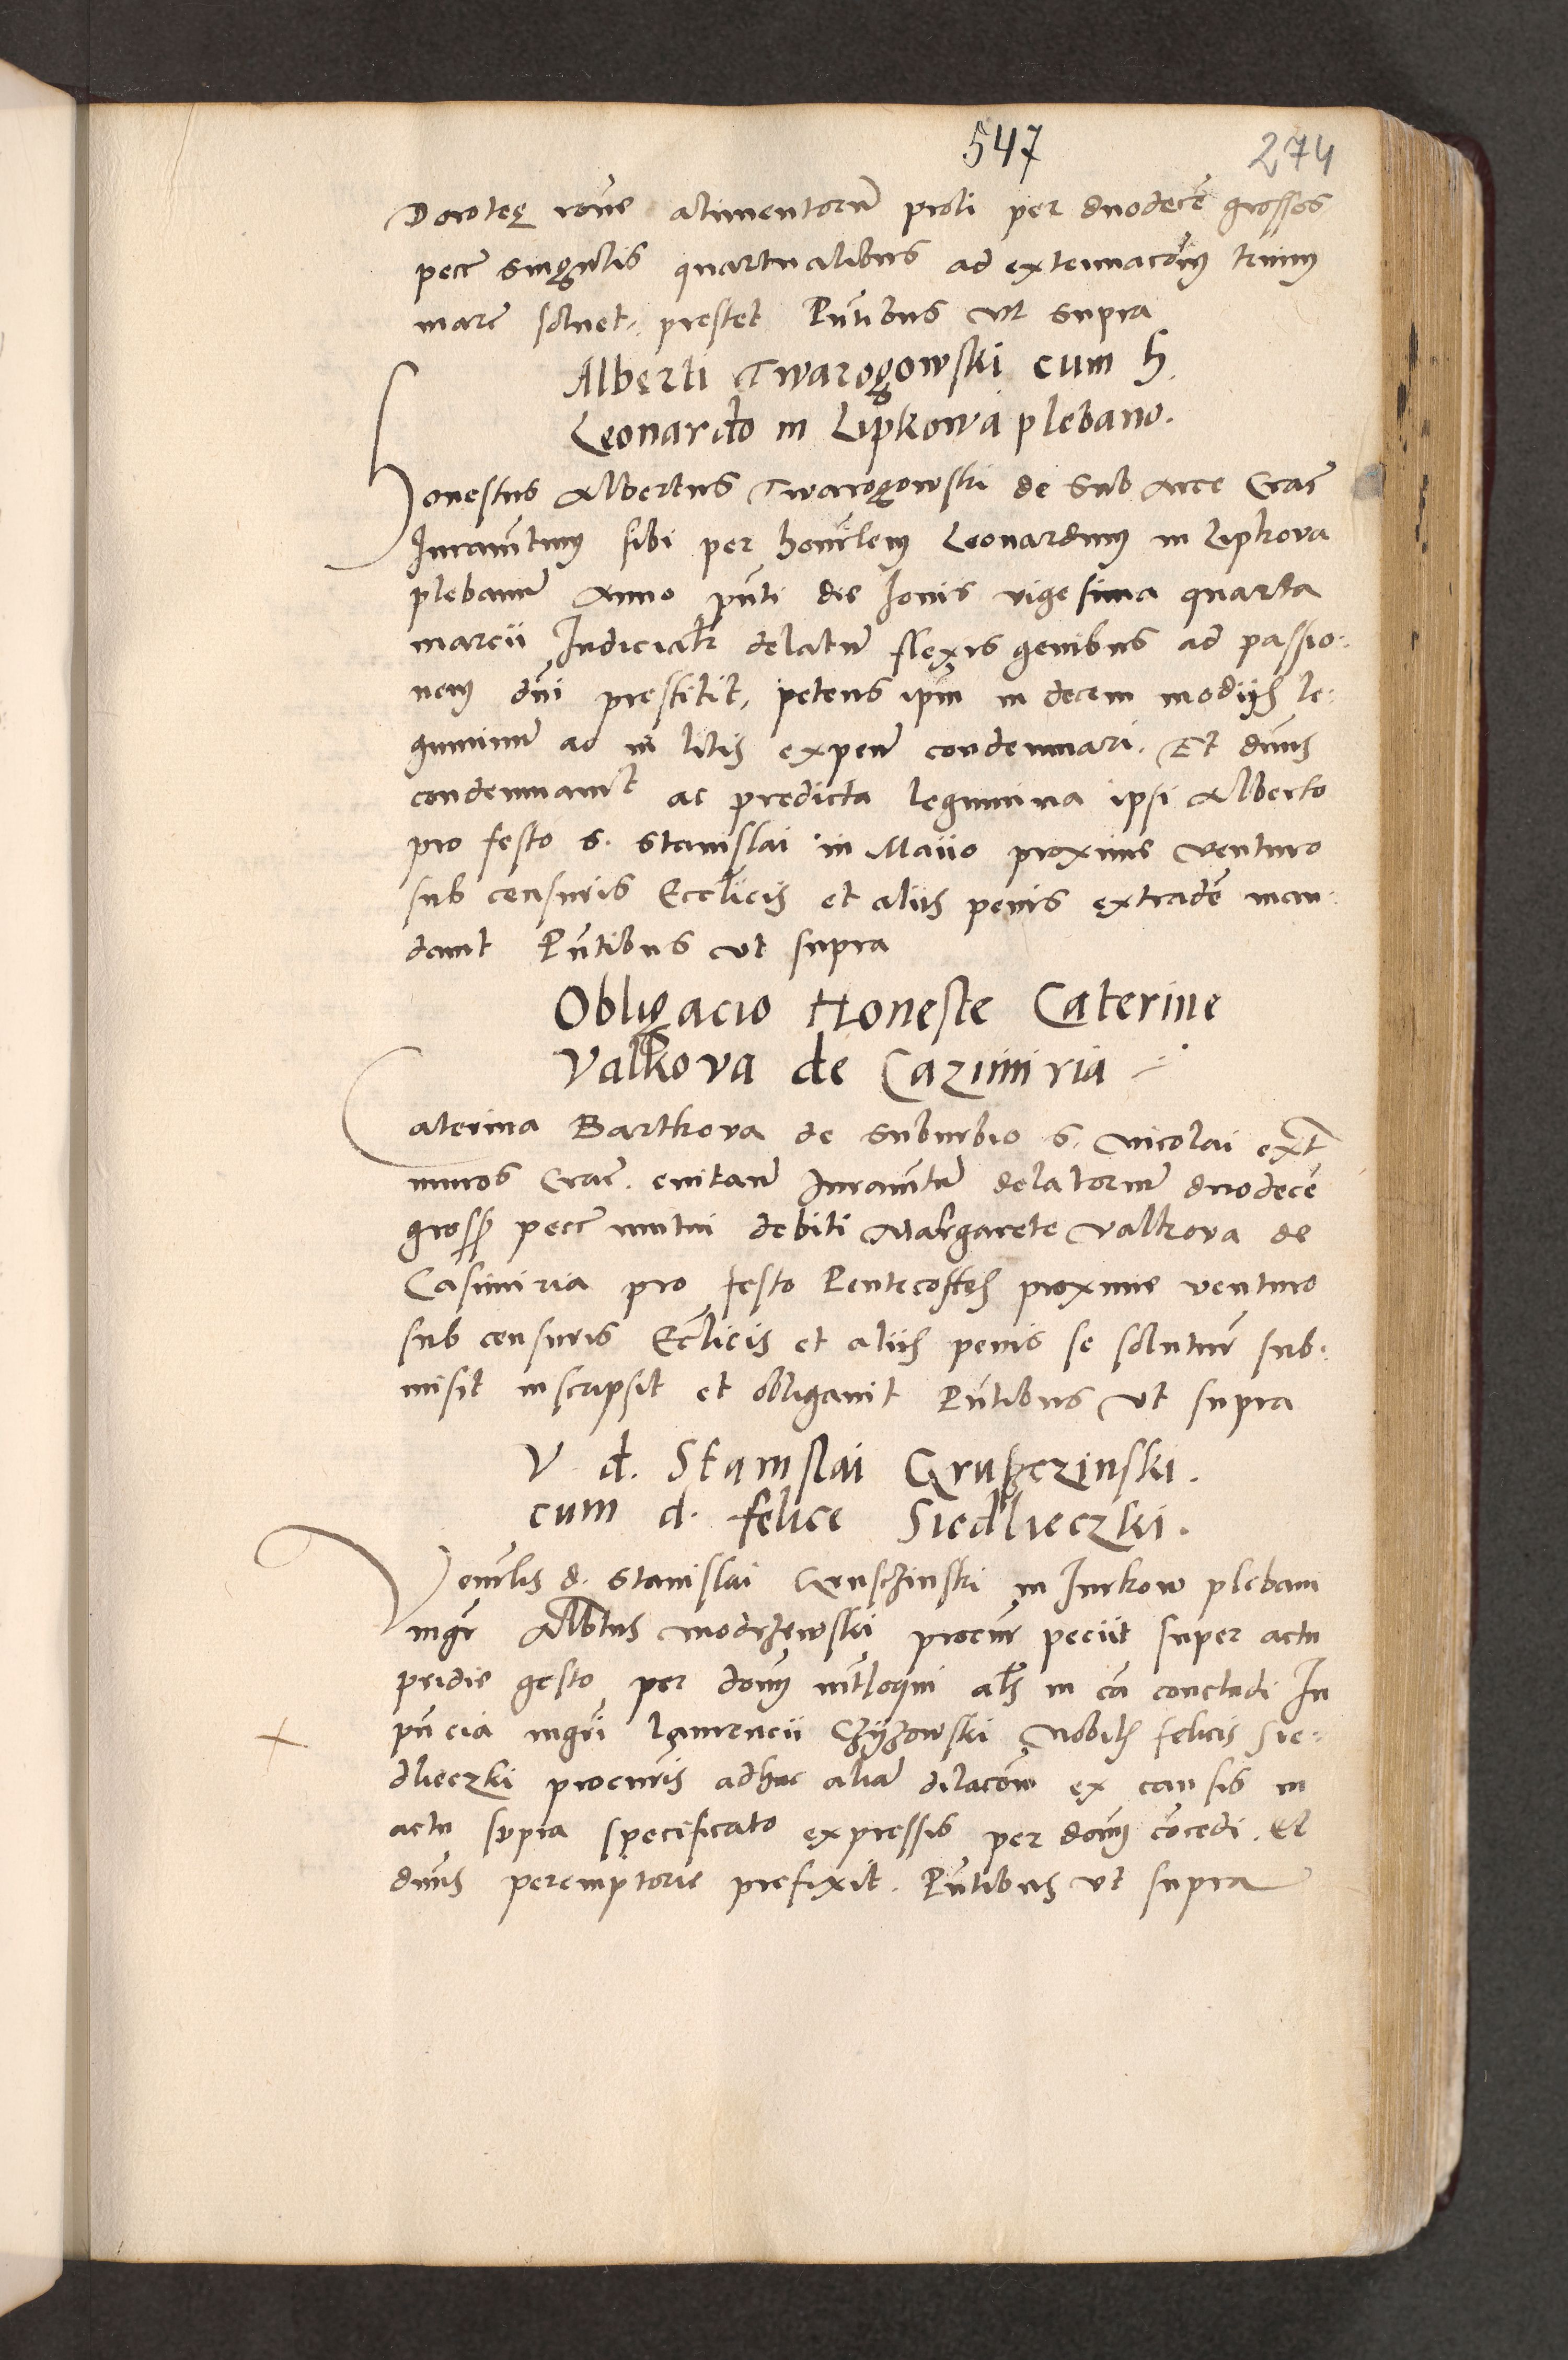 547
274
Doroteę rōne alimentorū proli per duodecē grossos
pecē singulis quartualibus ad extenuacōnē
marē soluet, prestet Pn̄tibus ut supra
Alberti Twarogowski cum h.
Leonardo in Lipkowa plebano.
Honestus Albertus Twarogowski de sub Arce Crac̄
Iuramētum sibi per honorlem Leonardum in Lipkova
plebanū Anno pn̄ti die Iovis vigesima quarta
marcii Iudicialr̄ delatū flexis genibus ad passio-
nem dni prestitit, petens ipm̄ in decem modiis le-
guminū ac in litis expen̄ condemnari. Et dnus
condemnauit ac predicta legumina ipsi Alberto
pro festo S. Stanislai in Maiio proxime venturo
sub censuris Eccl̄icis et aliis penis extradē man-
dauit Pn̄tibus ut supra
Obligacio Honeste Caterine
Valkova de Cazimiria
Caterina Bartkova de suburbio S. Nicolai ext̄
muros Crac̄. euitan̄ Iuramētū delatorum duodecē
gross pecē mutui debiti Margarete Valkova de
Casimiria pro festo Pentecostes proxime venturo
sub censuris Ecl̄icis et aliis penis se soluturā sub-
misit inscripsit et obligauit Pn̄tibus ut supra
V. d. Stanislai Gruszczinski.
cum d. felice Siedlieczki.
Venerlis d. Stanislai Gruschinski in Iurkow plebani
mgr̄ Albtus Modrzewski procur̄ peciit super actu
pridie gesto per dom̄ int̄loqui al̄s in cā concludi In
pn̄cia mgr̄i Laurencii Czyzowski Nobilis felicis Sie-
dlieczki procuris adhuc aliā dilacōem ex causis in
actu supra specificato expressis per dom̄ cōcedi. Et
dnus peremptorie prefixit. Pn̄tibus ut supra